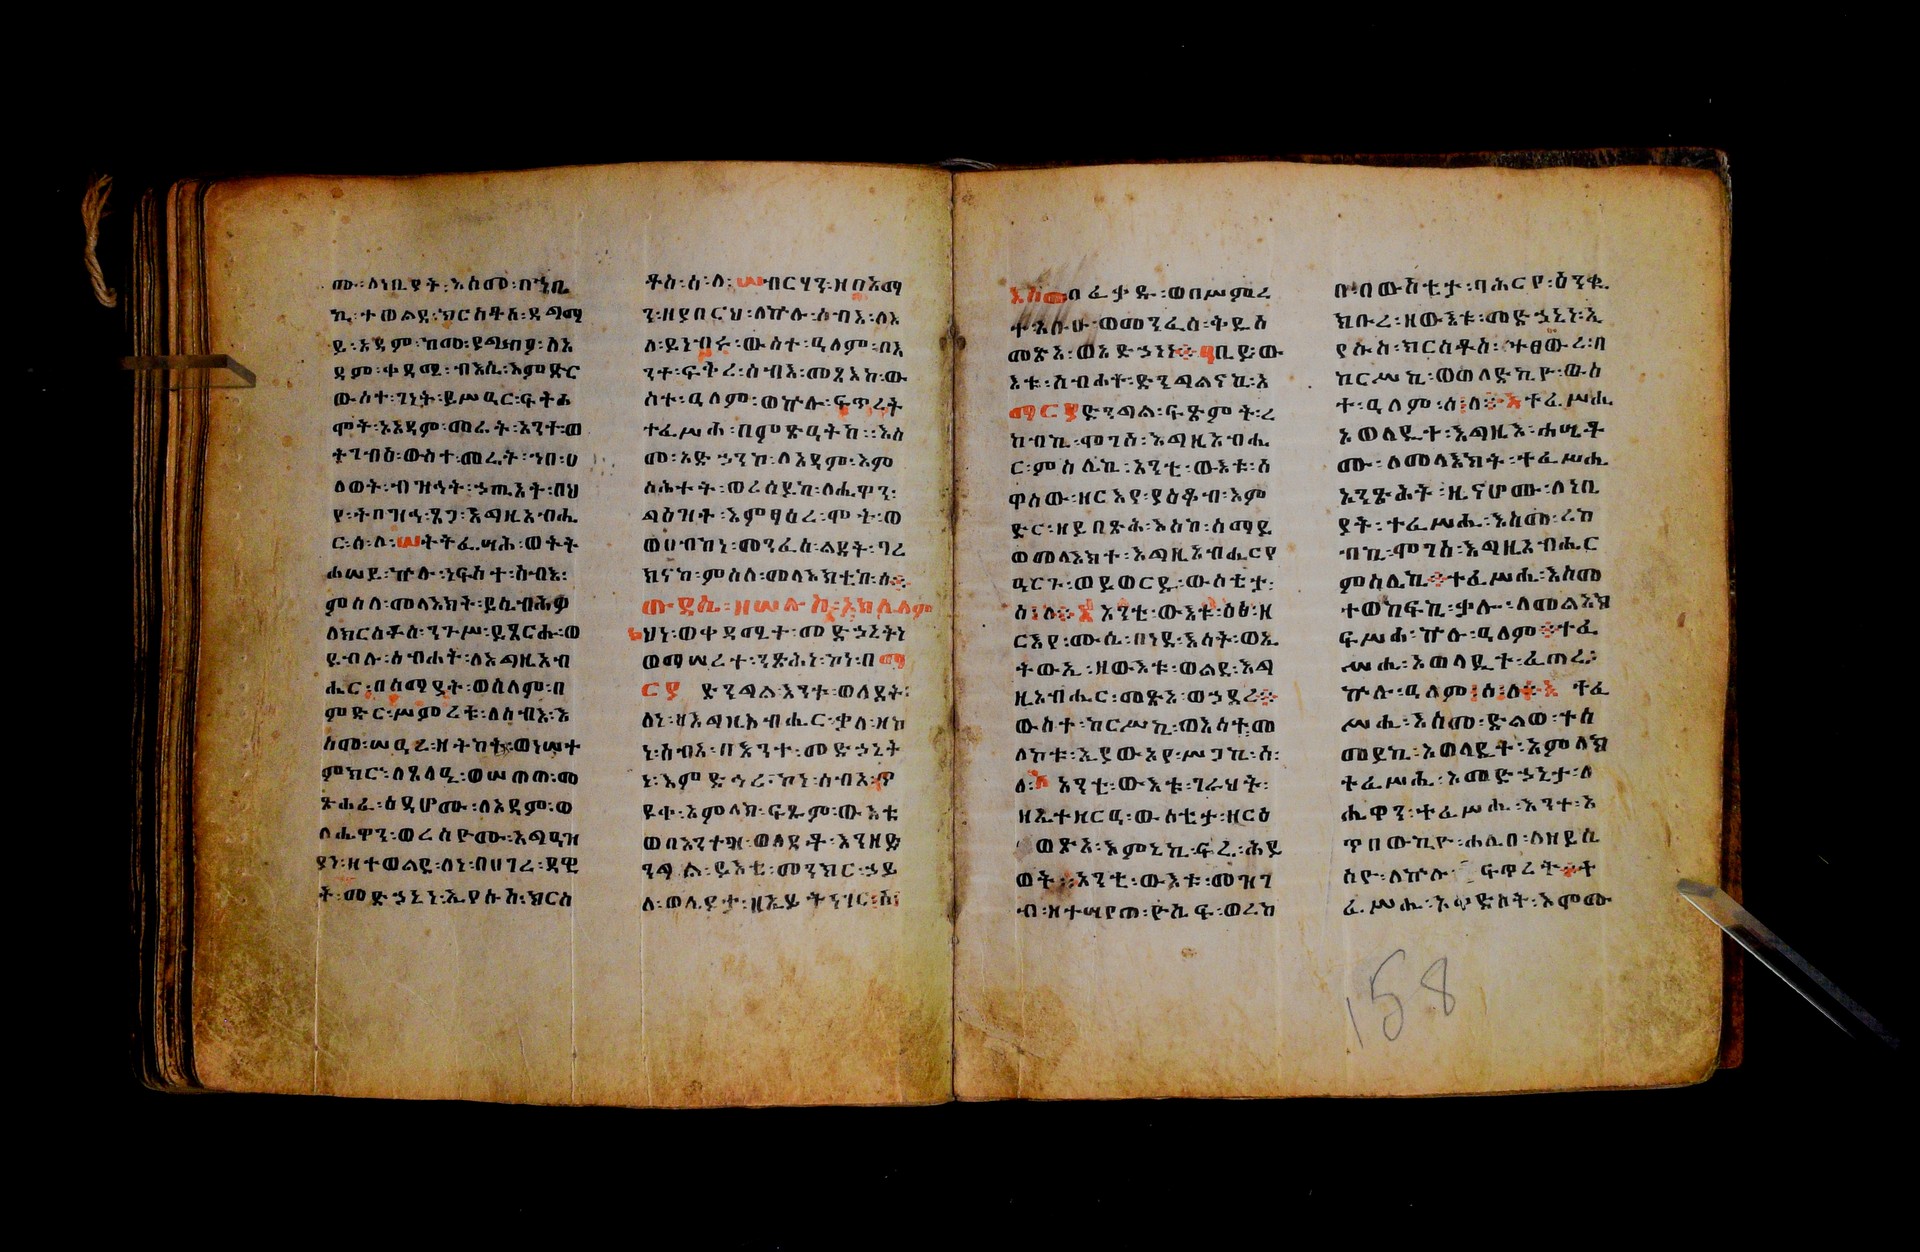 ሙ፡ለነቢያት፡እስመ፡በኀቢ
ኪ፡ተወልደ፡ክርስቶስ፡ዳግማ
ይ፡አዳም፡ከመ፡ያግብኦ፡ለአ
ዳም፡ቀዳሚ፡ብእሲ፡እምድር
ውስተ፡ገነት፡ይሥዒር፡ፍትሐ
ሞት፡ኦአዳም፡መሬት፡አንተ፡ወ
ትገብእ፡ውስተ፡መሬት፡ኀበ፡ሀ
ለወት፡ብዝኅት፡ኃጢአት፡በህ
የ፡ትበዝኅ፡ጸጋ፡እግዚአብሔ
ር፡ሰ፡ለ፡ሠትትፌሣሕ፡ወትት
ሐሠይ፡ኵሉ፡ነፍስተ፡ሰብእ፡
ምስለ፡መላእክት፡ይሴብሕዎ
ለክርስቶስ፡ንጉሥ፡ይጸርሑ፡ወ
ይብሉ፡ስብሐት፡ለእግዚአብ
ሔር፡በሰማያት፡ወሰላም፡በ
ምድር፡ሥምረቱ፡ለሰብእ፡እ
ስመ፡ሠዒረ፡ዘትካት፡ወነሠተ
ምክር፡ለጸላዒ፡ወሠጠጠ፡መ
ጽሐፈ፡ዕዳሆሙ፡ለአዳም፡ወ
ለሔዋን፡ወረሰዮሙ፡አግዓዝ
ያነ፡ዘተወልደ፡ለነ፡በሀገረ፡ዳዊ
ት፡መድኃኒነ፡ኢየሱስ፡ክርስ
ቶስ፡ሰ፡ለ፡ሠብርሃን፡ዘበአማ
ን፡ዘያበርህ፡ለኵሉ፡ሰብእ፡ለእ
ለ፡ይነብሩ፡ውስተ፡ዓለም፡በእ
ንተ፡ፍትረ፡ሰብእ፡መጻእከ፡ው
ስተ፡ዓለም፡ወኵሉ፡ፍጥረት
ተፈሥሐ፡በምጽዓትከ፡እስ
መ፡አድኃንኮ፡ለአዳም፡እም
ስሕተት፡ወረሰይካ፡ለሔዋን፡
ግዕዝት፡እምፃዕረ፡ሞት፡ወ
ወሀብከነ፡መንፈሰ፡ልደት፡ባረ
ክናከ፡ምስለ፡መላእክቲከ፡ሰ፡
ውዳሴ፡ዘሠሉስ፡አክሊለም
ክህነ፡ወቀዳሚተ፡መድኃኒትነ
ወማሠረተ፡ንጽሕነ፡ኮነ፡በማ
ርያ ድንግል፡እንተ፡ወለደት፡
ለነ፡ዘእግዚአብሔር፡ቃለ፡ዘኮ
ነ፡ሰብአ፡በእንተ፡መድኃኒት
ነ፡እምድኅረ፡ኮነ፡ሰብአ፡ጥ
ዩቀ፡አምላክ፡ፍጹም፡ውእቱ
ወበእንተዝ፡ወለደቶ፡እንዘ፡ድ
ንግል፡ይእቲ፡መንክር፡ኃይ
ለ፡ወሊዶታ፡ዘኢይትነገር፡ሰ፡
እስመበፈቃዱ፡ወበሥምረ
ተ፡አቡሁ፡ወመንፈስ፡ቅዱስ
መጽአ፡ወአድኃነነ፡ዓቢይ፡ው
እቱ፡ስብሐተ፡ድንግልናኪ፡እ
ማርያድንግል፡ፍጽምት፡ረ
ከብኪ፡ሞገሰ፡እግዚአብሔ
ር፡ምስሌኪ፡አንቲ፡ውእቱ፡ሰ
ዋስው፡ዘርእየ፡ያዕቆብ፡እም
ድር፡ዘይበጽሕ፡እስከ፡ሰማይ
ወመላእክተ፡እግዚአብሔር፡የ
ዓርጉ፡ወይወርዱ፡ውስቴታ፡
ሰ፡ለ፡ አንቲ፡ውእቱ፡ዕፅ፡ዘ
ርእየ፡ሙሴ፡በነደ፡እሳት፡ወኢ
ትውኢ፡ዘውእቱ፡ወልደ፡እግ
ዚአብሔር፡መጽአ፡ወኃደረ፡
ውስተ፡ከርሥኪ፡ወእሳተ፡መ
ለኮቱ፡ኢያውአየ፡ሥጋኪ፡ሰ፡
ለ፡ አንቲ፡ውእቱ፡ገራህት፡
ዘኢተዘርዓ፡ውስቴታ፡ዘርዕ
ወጽአ፡እምኔኪ፡ፍሬ፡ሕይ
ወት፡አንቲ፡ውእቱ፡መዝገ
ብ፡ዘተሣየጠ፡ዮሴፍ፡ወረከ
በ፡በውስቴታ፡ባሕርየ፡ዕንቈ
ክቡረ፡ዘውእቱ፡መድኃኒነ፡ኢ
የሱስ፡ክርስቶስ፡ተፀውረ፡በ
ከርሥኪ፡ወወለድኪዮ፡ውስ
ተ፡ዓለም፡ሰ፡ለ፡ ተፈሥሒ
ኦወላዲተ፡እግዚእ፡ሐሤቶ
ሙ፡ለመላእክት፡ተፈሥሒ
ኦንጽሕት፡ዜናሆሙ፡ለነቢ
ያት፡ተፈሥሒ፡እስመ፡ረከ
ብኪ፡ሞገሰ፡እግዚአብሔር
ምስሌኪ፡ተፈሥሒ፡እስመ
ተወከፍኪ፡ቃሉ፡ለመልአክ
ፍሥሐ፡ኵሉ፡ዓለም፡ተፈ
ሥሒ፡ኦወላዲተ፡ፈጠሬ፡
ኵሉ፡ዓለም፡ሰ፡ለ፡ ተፈ
ሥሒ፡እስመ፡ድልወ፡ተሰ
መይኪ፡ኦወላዲተ፡አምላክ
ተፈሥሒ፡ኦመድኃኒታ፡ለ
ሔዋን፡ተፈሥሒ፡እንተ፡አ
ጥበውኪዮ፡ሐሊበ፡ለዘይሴ
ሰዮ፡ለኵሉ፡ ፍጥረት፡ት
ፈሥሒ፡ኦቅድስት፡እሞሙ
158